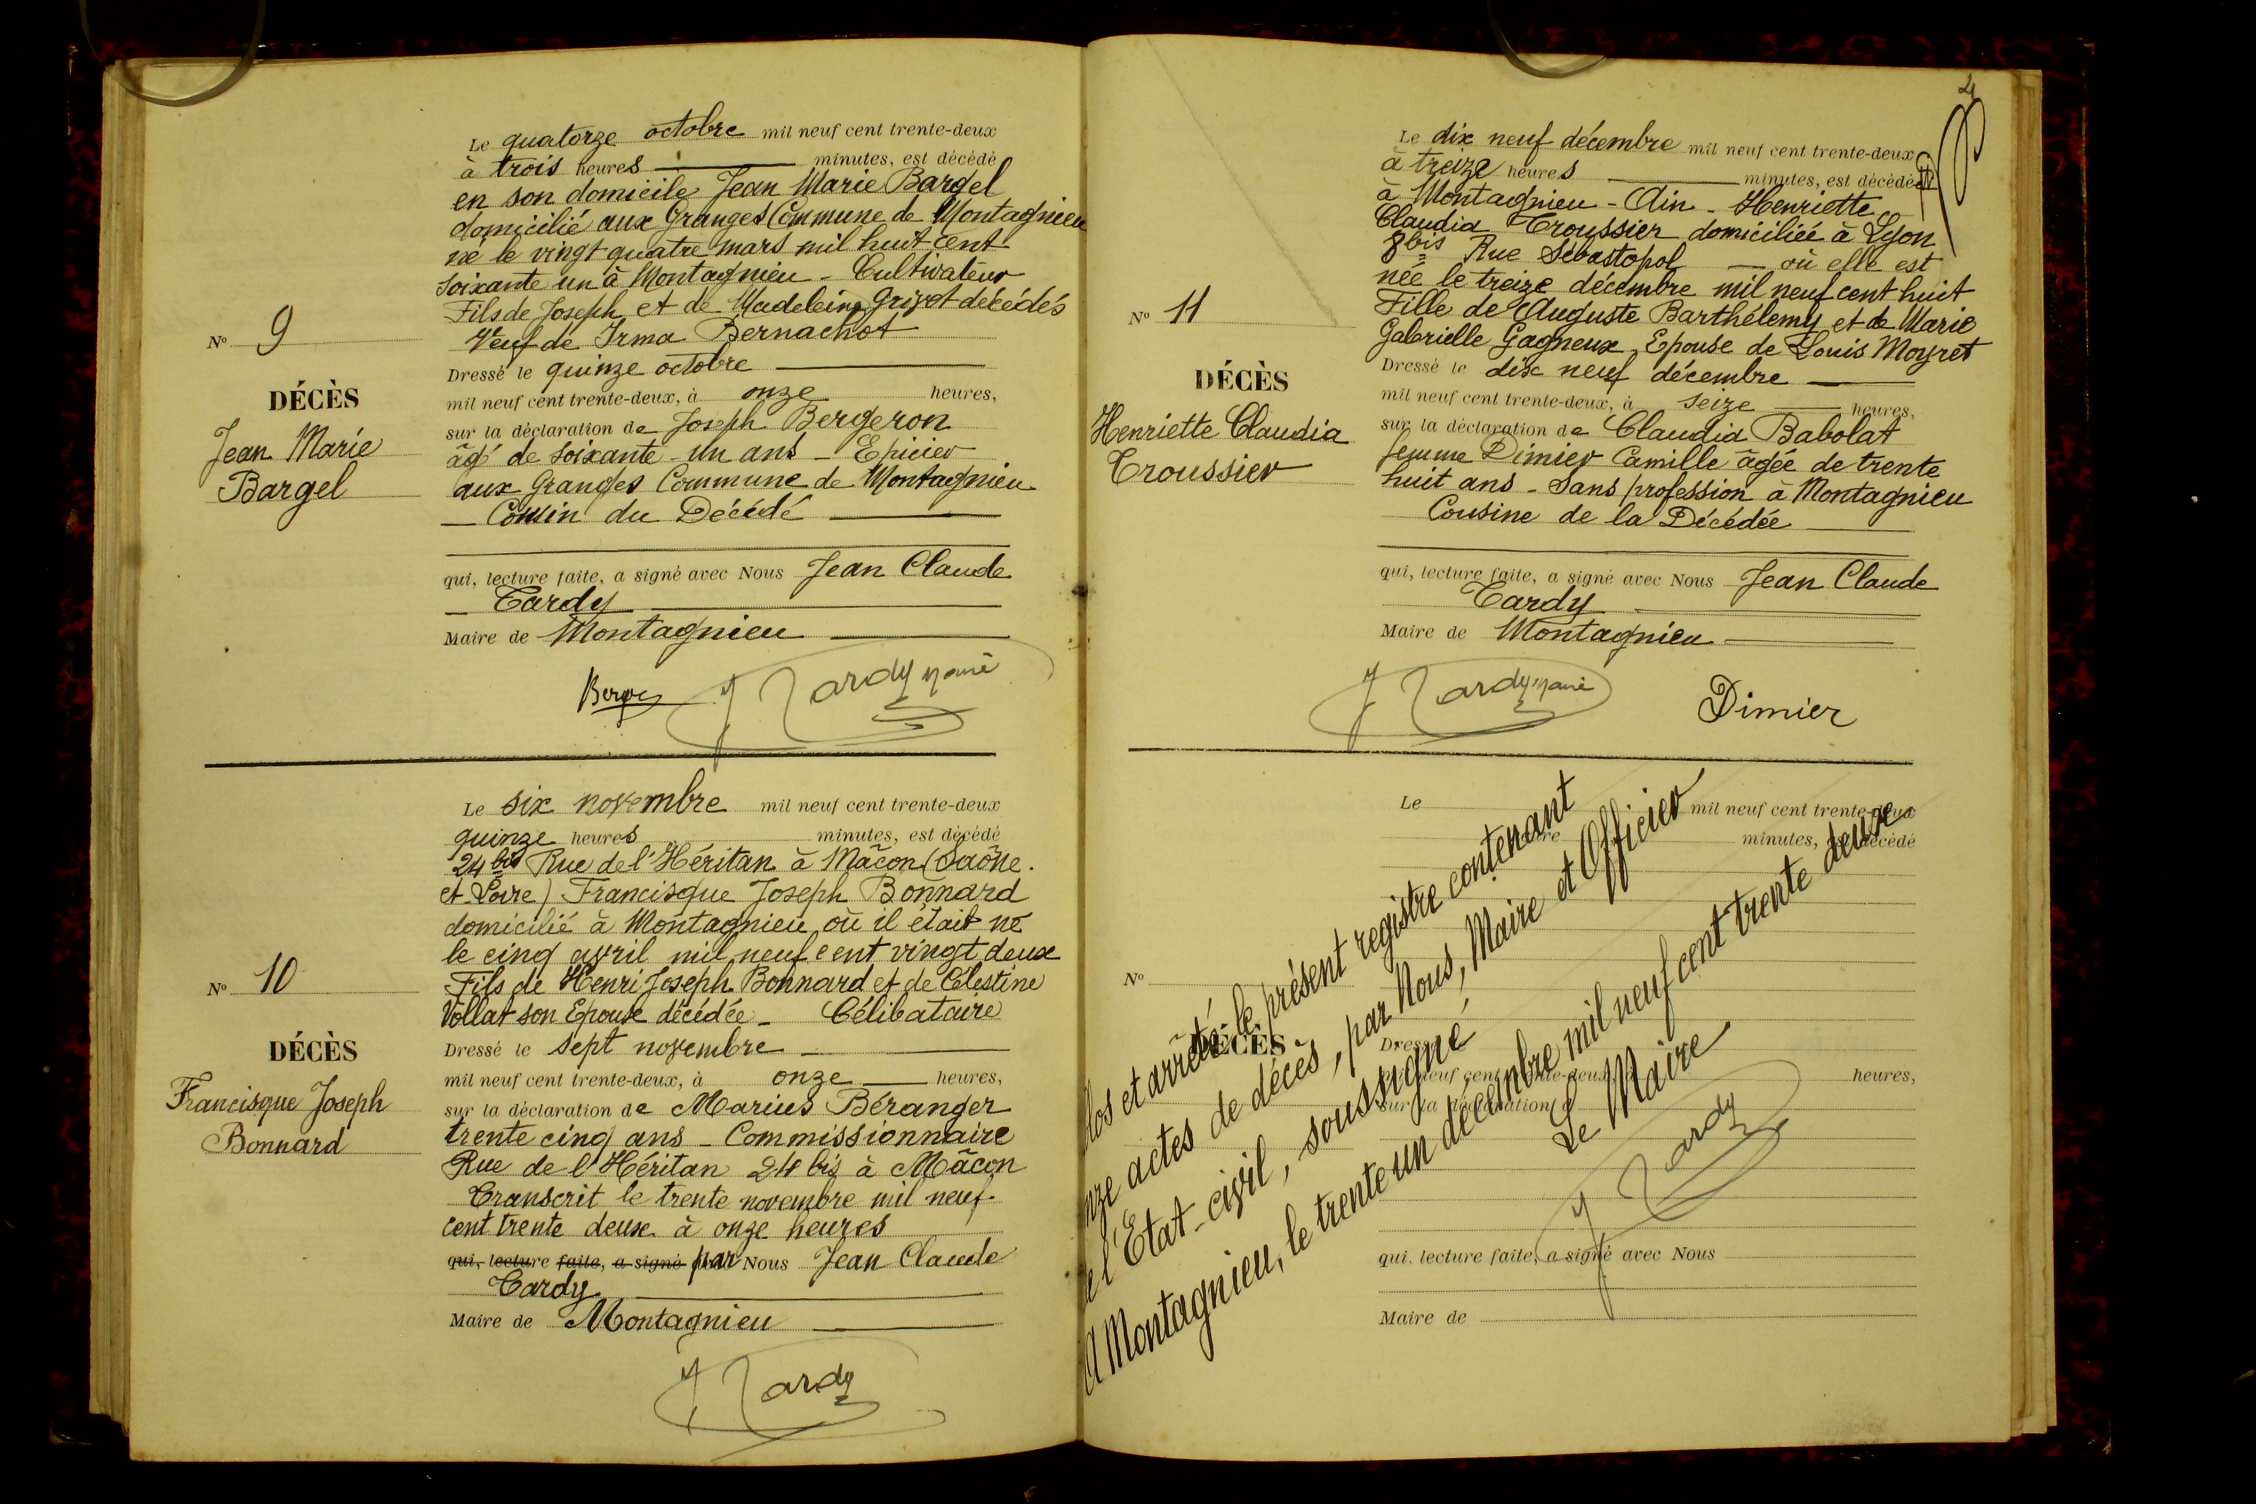 Le quatorze octobre mil neuf cent trente-deux
à trois heures — minutes, est décédé
en son domicile Jean Marie Bargel
domicilié aux Granges Commune de Montagnieu
né le vingt quatre mars mil huit cent
soixante un à Montagnieu - Cultivateur
Fils de Joseph et de Madeleine Grizet décédés
Veuf de Irma Bernachot
Nº 9
Dressé le quinze octobre
DÉCÈS
mil neuf cent trente-deux, à onze heures,
Jean Marie
Bargel
sur la déclaration de Joseph Bergeron
âgé de soixante - un ans - Epicier
aux Granges Commune de Montagnieu
— Cousin du Décédé —
qui, lecture faite, a signé avec Nous Jean Claude
— Tardy —
Maire de Montagnieu —
J Tardy maire
Le six novembre mil neuf cent trente-deux
quinze heures minutes, est décédé
24 bis Rue de l'Héritan à Mâcon (Saône.
et Loire) Francisque Joseph Bonnard
domicilié à Montagnieu où il était né
le cinq avril mil neuf cent vingt deux
Nº 10
Fils de Henri Joseph Bonnard et de Célestine
Vollat son Epouse décédée - Célibataire
DÉCÈS
Dressé le sept novembre —
mil neuf cent trente-deux, à onze — heures,
Francisque Joseph
Bonnard
sur la déclaration de Marius Béranger
trente cinq ans - Commissionnaire
Rue de l'Héritan 24 bis à Mâcon
Transcrit le trente novembre mil neuf-
cent trente deux à onze heures
qui, lecture faite, a signé par Nous Jean Claude
Tardy —
Maire de Montagnieu —
J Tardy
Le dix neuf décembre mil neuf cent trente-deux
à treize heures — minutes, est décédée
à Montagnieu - Ain - Henriette
Claudia Troussier domiciliée à Lyon
8 bis Rue Sébastopol — où elle est
née le treize décembre mil neuf cent huit
Nº 11
Fille de Auguste Barthélemy et de Marie
Gabrielle Gagneux, Epouse de Louis Moyret
DÉCÈS
Dressé le dix neuf décembre —
mil neuf cent trente-deux, à seize — heures,
Henriette Claudia
Troussier
sur la déclaration de Claudia Babolat
femme Dimier Camille âgée de trente
huit ans - Sans profession à Montagnieu
Cousine de la Décédée —
qui, lecture faite, a signé avec Nous Jean Claude
Tardy —
Maire de Montagnieu —
J Tardy maire
Dimier
Le mil neuf cent trente-deux
minutes, décédé
Nº
DÉCÈS
heures,
sur la déclaration
qui, lecture faite, a signé avec Nous
Maire de
los et arrêté le présent registre contenant
nze actes de décès, par Nous, Maire et Officier
e l'Etat-civil, soussigné
A Montagnieu, le trente un décembre mil neuf cent trente deux
Le Maire
J Tardy